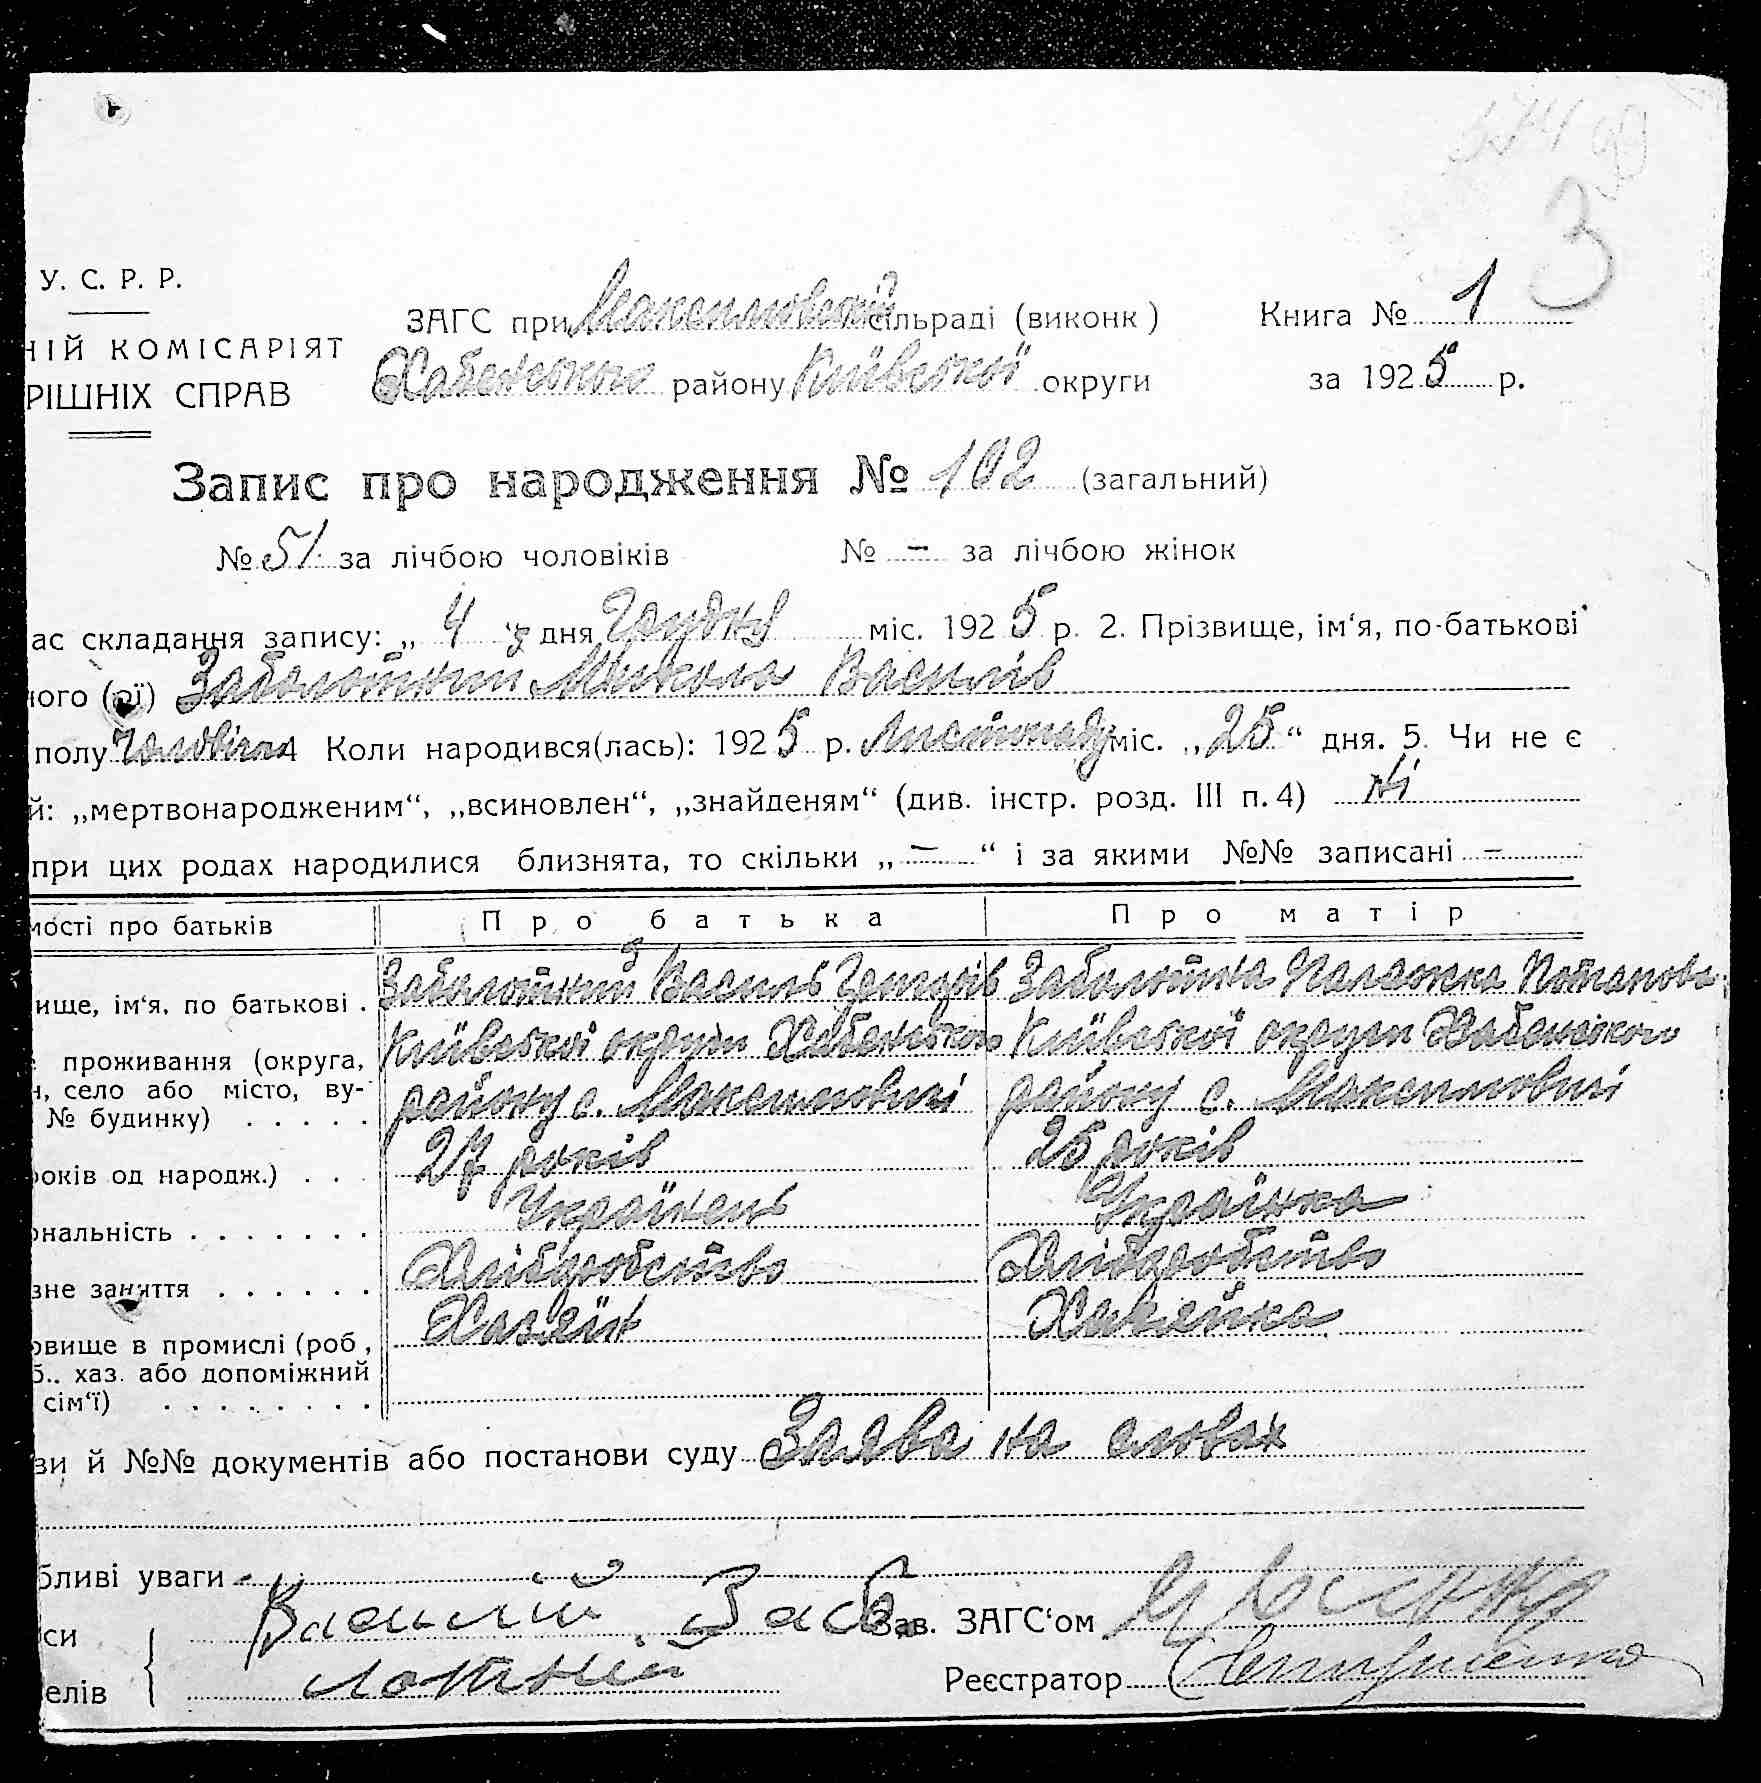 3
У. С. Р. Р.
НІЙ КОМІСАРІЯТ
РІШНІХ СПРАВ
ЗАГС при сільраді (виконк )
Хабенського району Київської округи
Книга № 1
за 1925 р.
Запис про народження № 102 (загальний)
№ 51 за лічбою чоловіків № – за лічбою жінок
ас складання запису: „ 4 “ дня Грудня міс. 1925 р. 2. Прізвище, ім‘я, по-батькові
ного (ої) Заболотний Микола Василів
полу 4 Коли народився(лась): 1925 р. Листопаду міс. „25“ дня. 5. Чи не є
й: „мертвонародженим“, „всиновлен“, „знайденям“ (див. інстр. розд. III п. 4) Ні
при цих родах народилися близнята, то скільки „ – “ і за якими №№ записані –
мості про батьків Про батька Про матір
ище, ім‘я, по батькові . Заболотний Василь Заболотна Палажка Потапова
проживання (округа, Київської округи Хабенського Київської округи Хабенського
н, село або місто, ву-
№ будинку) . . . . . району с. району с.
років од народж.) . . . 27 років 25 років
ональність . . . . . . . Українець Українка
вне заняття . . . . . . Хліборобство Хліборобство
овище в промислі (роб , Хазяїн Хазяйка
б.. хаз. або допоміжний
сім‘ї) . . . . . . . .
ви й №№ документів або постанови суду Заява на словах
бливі уваги -
си Василий Забо Зав. ЗАГС‘ом
елів лотный Реєстратор